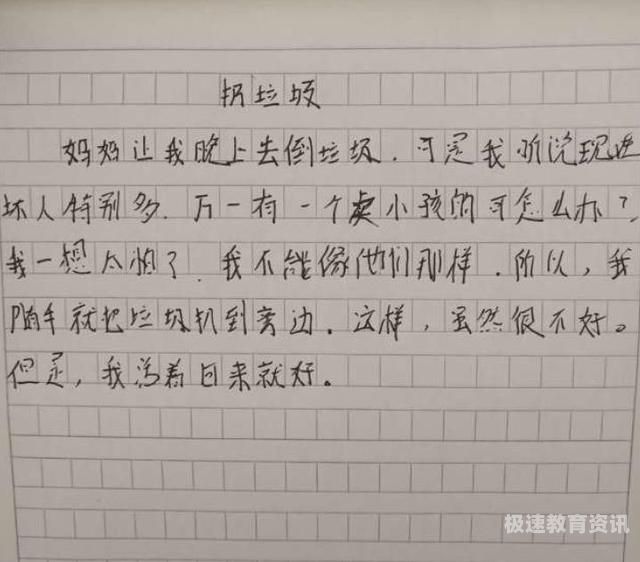 扔垃圾
妈妈让我晚上去倒垃圾，可是我听说现在
坏人特别多，万一有一个卖小孩的可怎么办？
我一想太怕了，我不能像他们那样，所以，我
随手就把垃圾扔到旁边。这样，虽然很不好。
但是，我活着回来就好。
极速教育资讯